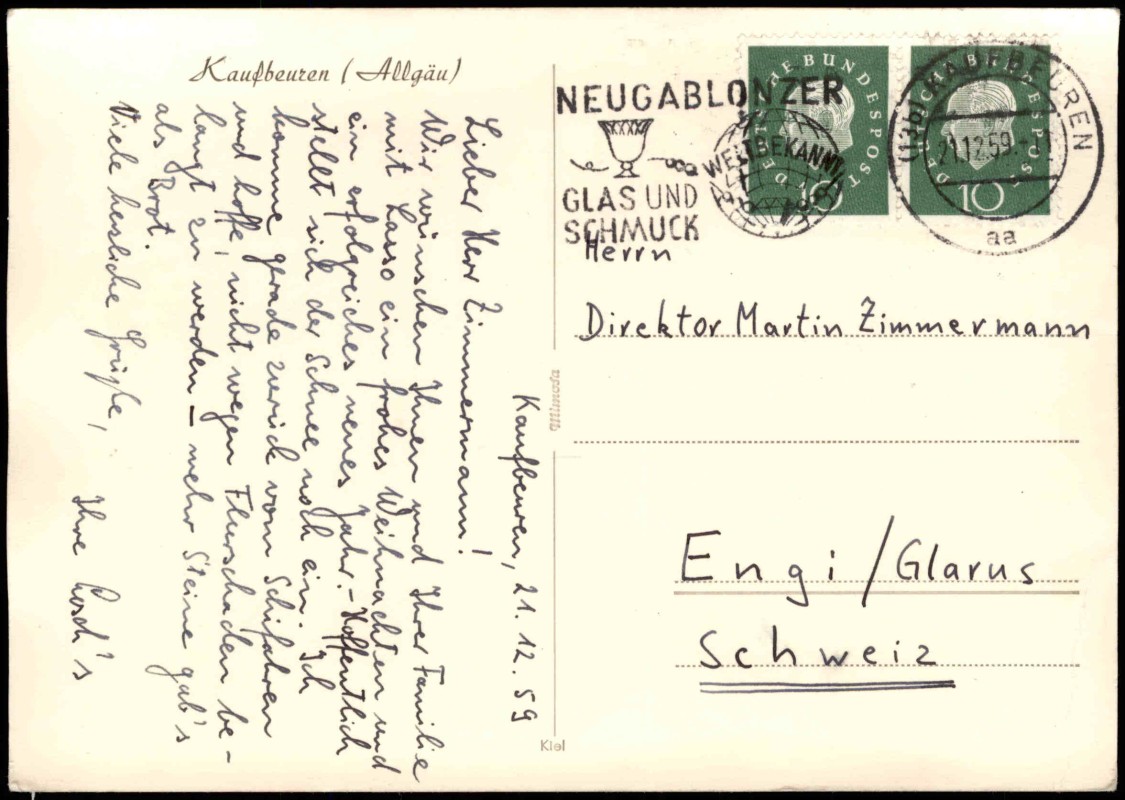 Kaufbeuren (Allgäu)
Kaufbeuren, 21. 12. 59
Lieber Herr Zimmermann!
Wir wünschen Ihnen und Ihrer Familie
mit Lasso ein frohes Weihnachten und
ein erfolgreiches neues Jahr. – Hoffentlich
stellt sich der Schnee noch ein. Ich
komme gerade zurück vom Schifahren
und hoffe, nicht wegen Flurschaden be-
langt zu werden – mehr Steine gab's
als Brot.
Viele herzliche Grüße,
Ihre
NEUGABLONZER
WELTBEKANNT
GLAS UND
SCHMUCK
DEUTSCHE BUNDESPOST
10
DEUTSCHE BUNDESPOST
10
(13b) KAUFBEUREN
21.12.59
aa
Herrn
Direktor Martin Zimmermann
Engi / Glarus
Schweiz
Kiel